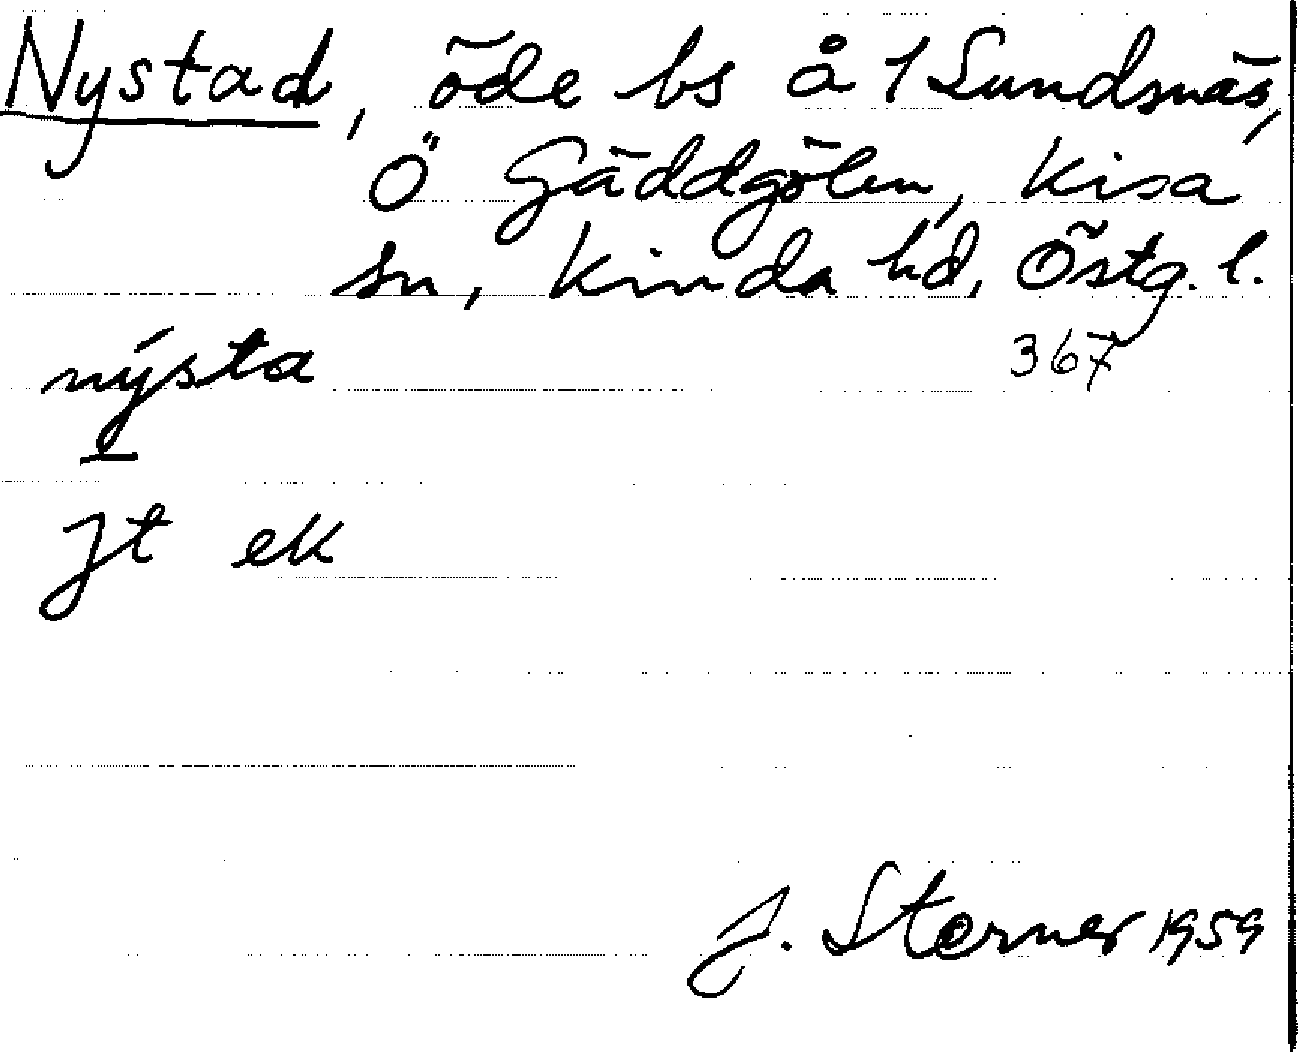 Nystad, öde bs å 1 Sundsnäs,
Ö Gäddgölen, Kisa
sn, Kinda hd, Östg. l.
367
nýsta
Jt ek
J. Storner 1959